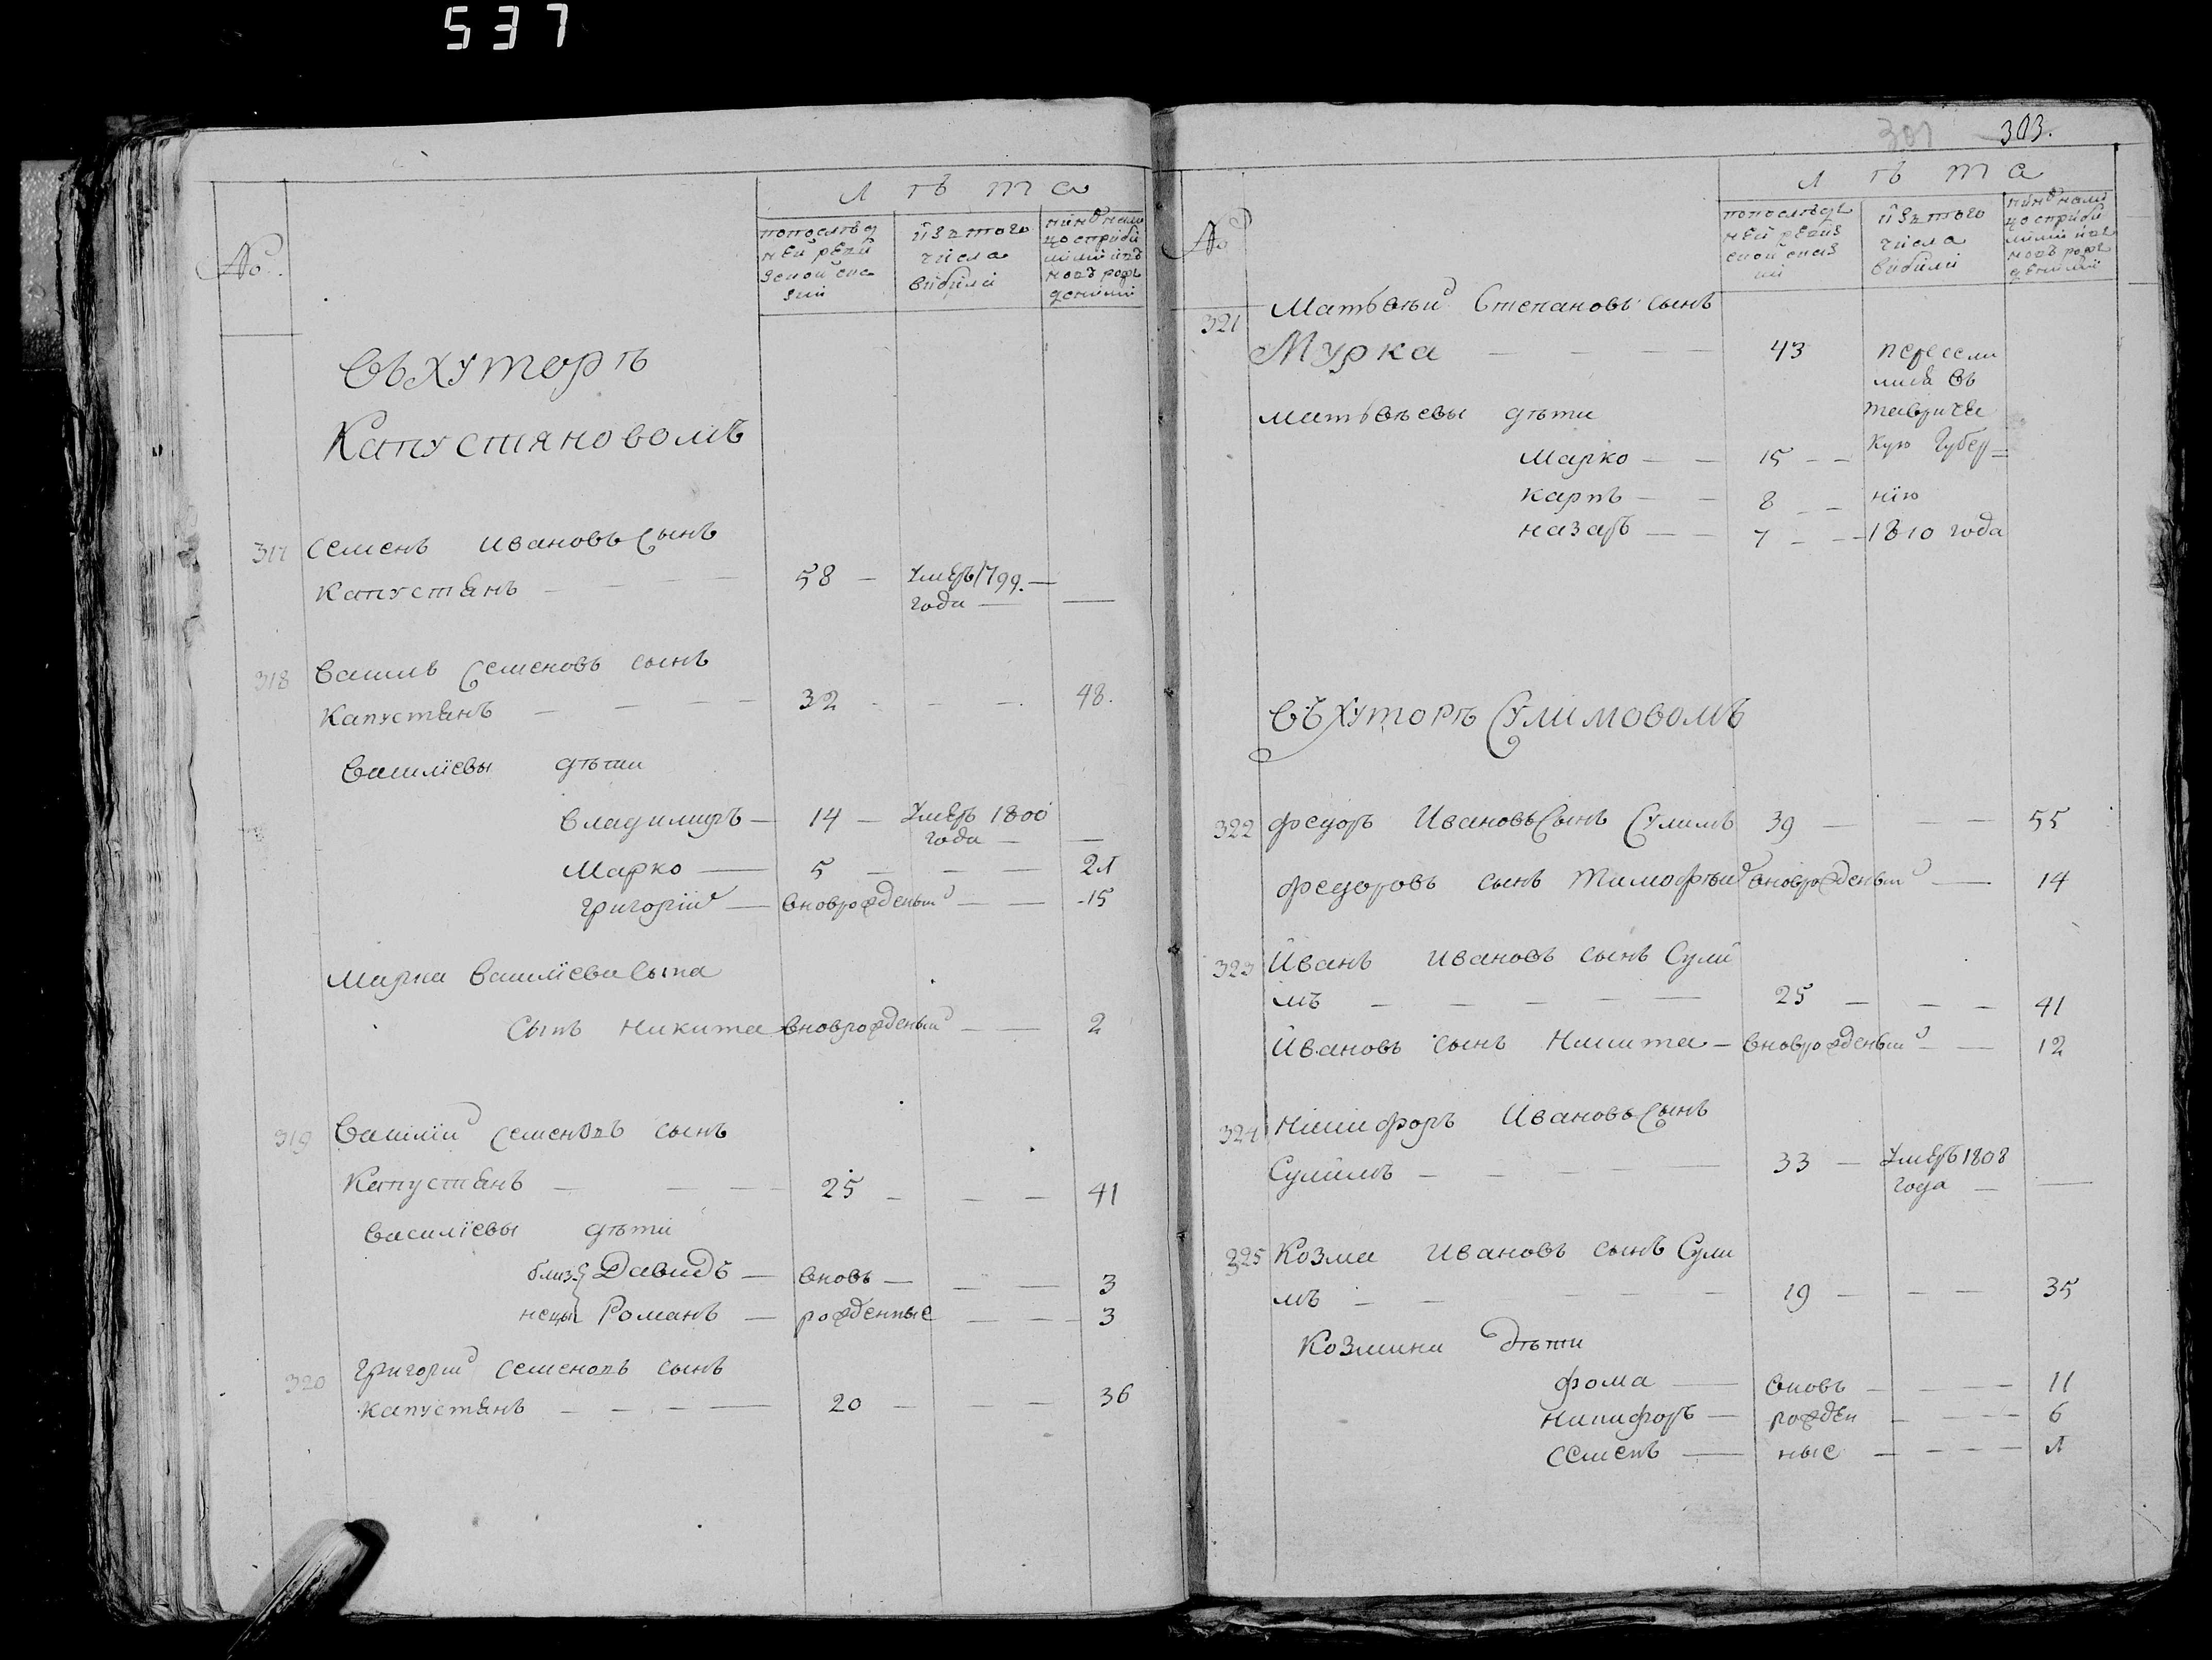 537
№
Лѣта
попослѣд
ней реви
зской ска
зки
изътого
числа
выбыли
Въ хуторѣ
Капустяновомъ
317 Семенъ Ивановъ Сынъ
Капустянъ — — — — 58 — Умеръ 1799.—
года — —
318 Василь Семеновъ сынъ
Капустянъ — — — — 32 - — — 48.
Василіевы дѣти
Владимиръ — 14 — Умеръ 1800
года — —
Марко — 5 — — — 21
Григорій — вноврожденый — — 15
Марка Василіева Сына
Сынъ Никита вноврожденый — — 2
319 Василій Семеновъ сынъ
Капустянъ — — — 25 — — — 41
Василіевы дѣти
близ Давидъ — вновь — — — 3
нецы Романъ — рожденные — — — 3
320 Григорій Семеновъ сынъ
Капустянъ — — — — 20 — — — 36
301 303.
№
Лѣта
попослѣд
ней ревиз
ской сказ
ки
изътого
числа
выбыли
321 Матвѣй Степановъ сынъ
Мурка — — — 43 пересели
лися въ
Матвѣевы дѣти тавриче
Марко — — 15 — — кую Губер=
Карпъ — — 8 — — нію
Назаръ — — 7 — — 1810 года
Въ хуторѣ Сулимовомъ
322 Федоръ Ивановъ Сынъ Сулимъ 39 — — — 55
Федоровъ сынъ Тимофѣй вноврожденый — 14
323 Иванъ Ивановъ сынъ Сули
мъ — — — — — 25 — — — 41
Ивановъ сынъ Никита — вноврожденый — — 12
324 Никифоръ Ивановъ Сынъ
Сулимъ — — — — — 33 — Умеръ 1808
года — —
325 Козма Ивановъ сынъ Сули
мъ — — — — — 19 — — — 35
Козмини дѣти
Фома — вновь — — — — 11
Никифоръ — рожден — — — — 6
Семенъ — ные — — — — 1